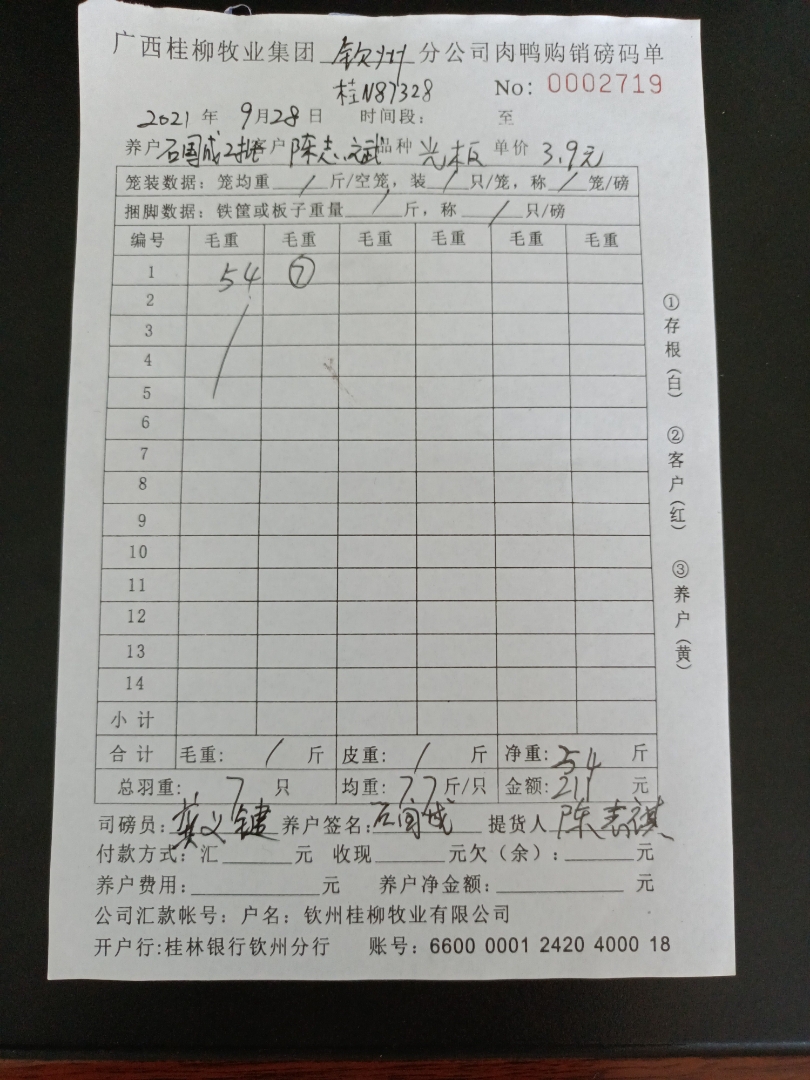 广西桂柳牧业集团 钦州 分公司肉鸭购销磅码单
桂N87328 No: 0002719
2021 年 9月28日 时间段: 至
养户 石国成2批 客户 陈志斌 品种 光板 单价 3.9元
笼装数据: 笼均重 / 斤/空笼, 装 / 只/笼, 称 / 笼/磅
捆脚数据: 铁筐或板子重量 / 斤, 称 / 只/磅
编号 毛重 毛重 毛重 毛重 毛重 毛重
1 54 ⑦
2
3
4
5
6
7
8
9
10
11
12
13
14
小计
合计 毛重: / 斤 皮重: / 斤 净重: 54 斤
总羽重: 7 只 均重: 7.7 斤/只 金额: 211 元
司磅员: 义键 养户签名: 石国成 提货人 陈志
付款方式: 汇 元 收现 元欠(余): 元
养户费用: 元 养户净金额: 元
公司汇款帐号: 户名: 钦州桂柳牧业有限公司
开户行:桂林银行钦州分行 账号: 6600 0001 2420 4000 18
①存根(白) ②客户(红) ③养户(黄)